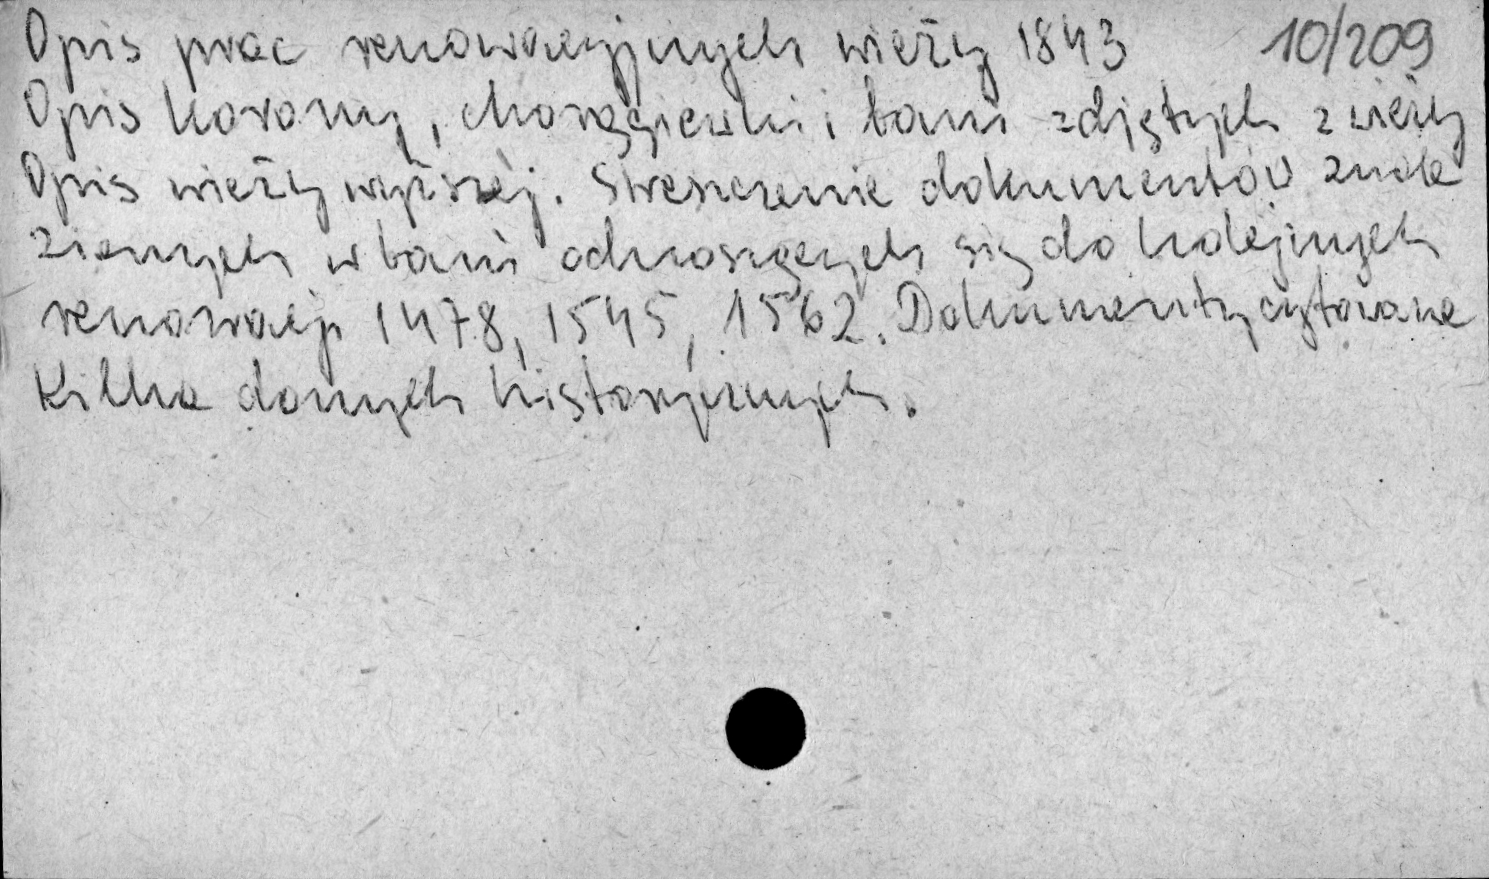 Opis prac renowacyjnych wieży 1843 10/209
Opis korony, chorągiewki i bani zdjętych z wieży
Opis wieży wyższej. Streszczenie dokumentów znale
zionych w bani odnoszących się do kolejnych
renowacji 1478, 1545, 1562. Dokumenty cytowane
Kilka danych historycznych.